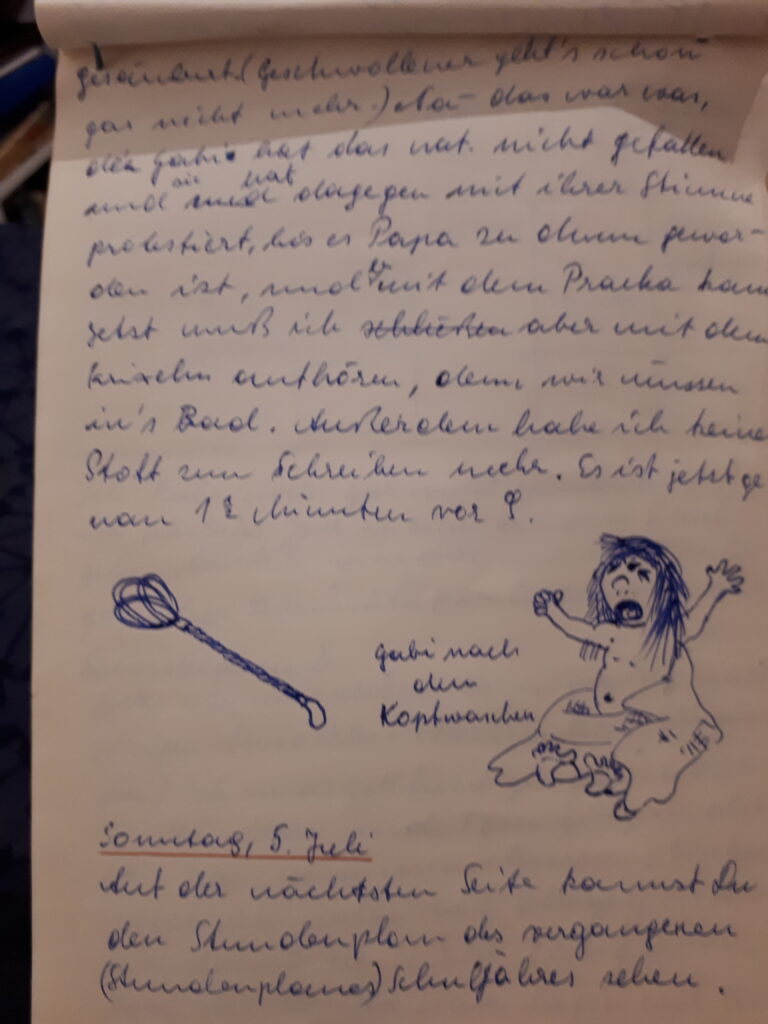 gesäubert. (Geschwollener geht's schon
gar nicht mehr.) Na das war was,
der Gabi hat das nat. nicht gefallen
und sie hat dagegen mit ihrer Stimme
protestiert, bis es Papa zu dumm gewor-
den ist, und er mit dem Pracka kam
Jetzt muß ich schließen aber mit dem
krixeln aufhören, denn wir müssen
in's Bad. Außerdem habe ich keine
Stoff zum Schreiben mehr. Es ist jetzt ge
nau 12 Minuten vor 9.
Gabi nach
dem
Kopfwaschen
Sonntag, 5. Juli
Auf der nächsten Seite kannst Du
den Stundenplan des vergangenen
(Stundenplanes) Schuljahres sehen.